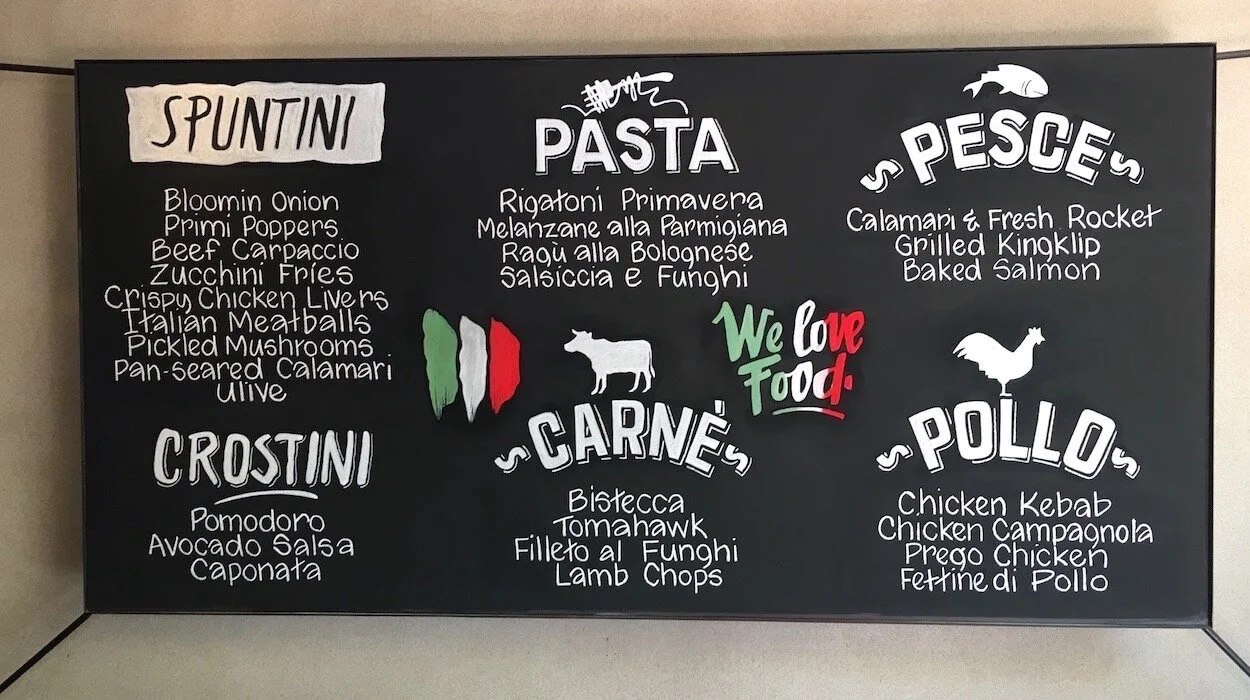 SPUNTINI
Bloomin Onion
Primi Poppers
Beef Carpaccio
Zucchini Fries
Crispy Chicken Livers
Italian Meatballs
Pickled Mushrooms
Pan-seared Calamari
Ulive
CROSTINI
Pomodoro
Avocado Salsa
Caponata
PASTA
Rigatoni Primavera
Melanzane alla Parmigiana
Ragù alla Bolognese
Salsiccia e Funghi
We love
Food.
CARNÉ
Bistecca
Tomahawk
Filleto al Funghi
Lamb Chops
PESCE
Calamari & Fresh Rocket
Grilled Kingklip
Baked Salmon
POLLO
Chicken Kebab
Chicken Campagnola
Prego Chicken
Fettine di Pollo